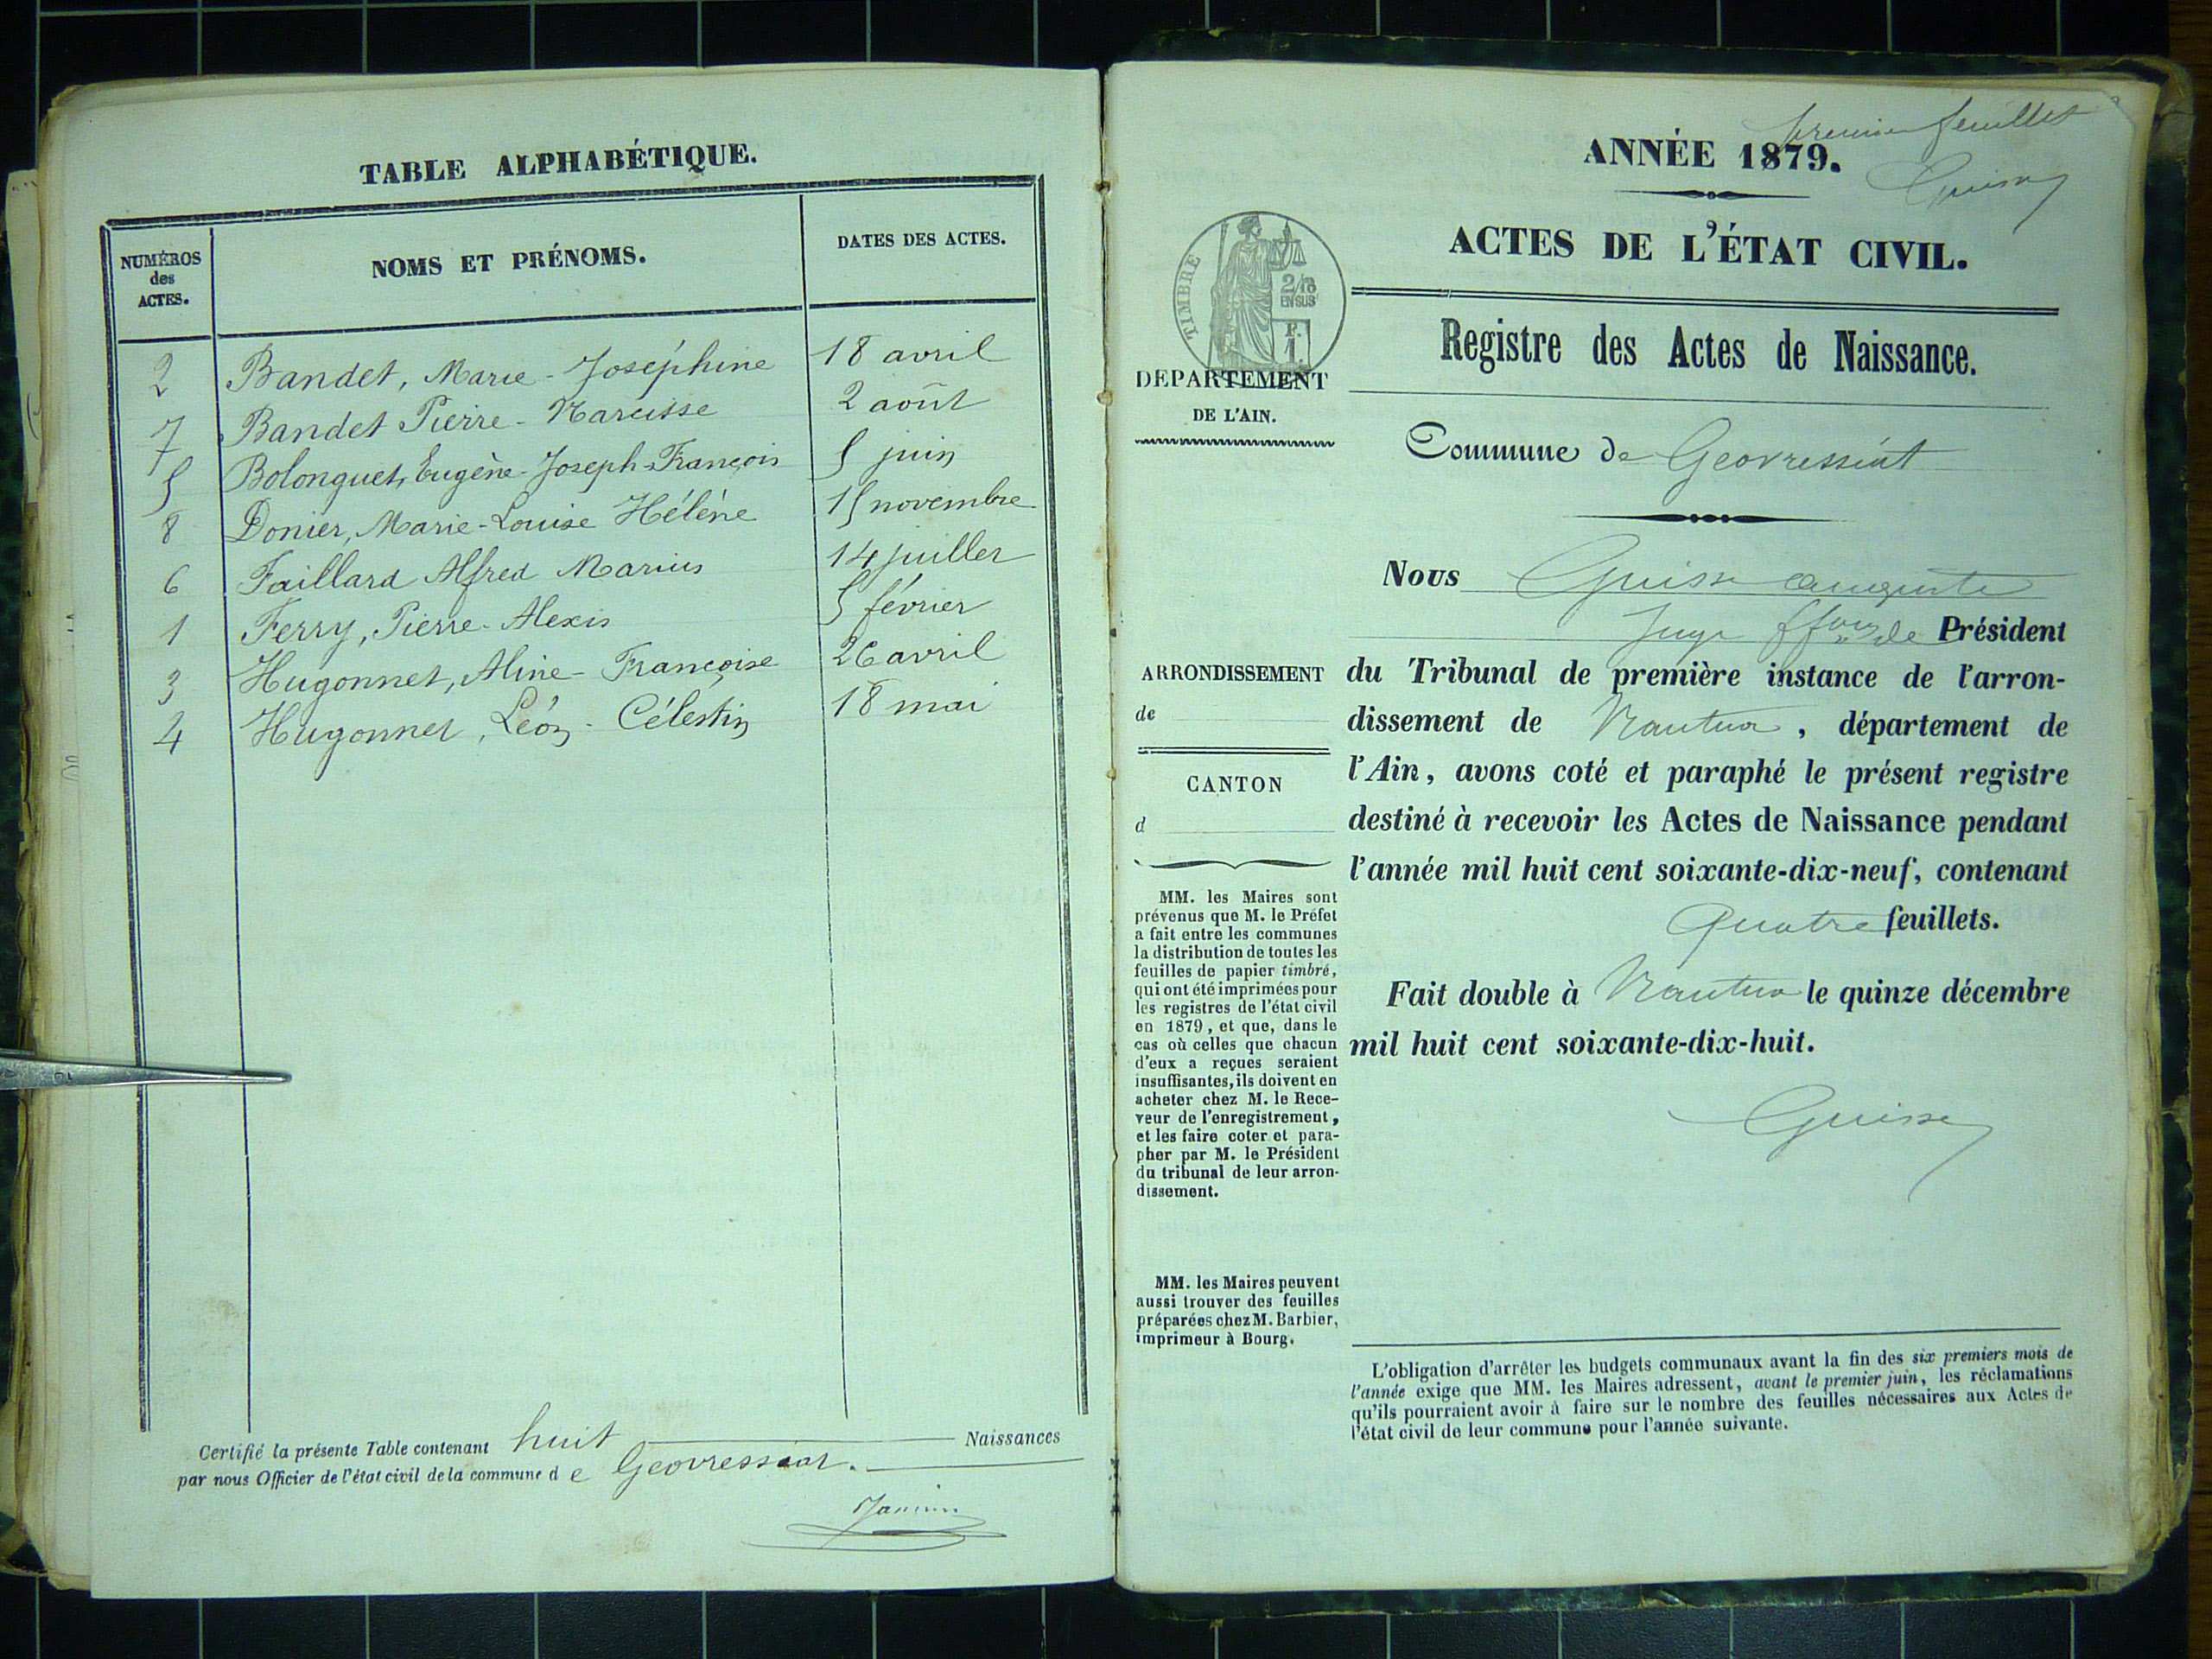 TABLE ALPHABÉTIQUE.
NUMÉROS des ACTES. NOMS ET PRÉNOMS. DATES DES ACTES.
2 Bandet, Marie-Joséphine 18 avril
7 Bandet Pierre-Narcisse 2 août
5 Bolonguet, Eugène-Joseph-François 5 juin
8 Donier, Marie-Louise Hélène 15 novembre
6 Faillard Alfred Marius 14 juillet
1 Ferry, Pierre-Alexis 5 février
3 Hugonnet, Aline-Françoise 26 avril
4 Hugonnet, Léon-Célestin 18 mai
Certifié la présente Table contenant huit Naissances
par nous Officier de l'état civil de la commune de Geovressiat.
premier feuillet
ANNÉE 1879.
Guisse
ACTES DE L'ÉTAT CIVIL.
TIMBRE
2/10
EN SUS
F.
1.
Registre des Actes de Naissance.
DEPARTEMENT
DE L'AIN.
Commune de Geovressiat
Nous Guisse Auguste
Juge ffons de Président
ARRONDISSEMENT
de
CANTON
d
du Tribunal de première instance de l'arron-
dissement de Nantua, département de
l'Ain, avons coté et paraphé le présent registre
destiné à recevoir les Actes de Naissance pendant
l'année mil huit cent soixante-dix-neuf, contenant
Quatre feuillets.
Fait double à Nantua le quinze décembre
mil huit cent soixante-dix-huit.
Guisse
MM. les Maires sont
prévenus que M. le Préfet
a fait entre les communes
la distribution de toutes les
feuilles de papier timbré,
qui ont été imprimées pour
les registres de l'état civil
en 1879, et que, dans le
cas où celles que chacun
d'eux a reçues seraient
insuffisantes, ils doivent en
acheter chez M. le Rece-
veur de l'enregistrement,
et les faire coter et para-
pher par M. le Président
du tribunal de leur arron-
dissement.
MM. les Maires peuvent
aussi trouver des feuilles
préparées chez M. Barbier,
imprimeur à Bourg.
L'obligation d'arrêter les budgets communaux avant la fin des six premiers mois de
l'année exige que MM. les Maires adressent, avant le premier juin, les réclamations
qu'ils pourraient avoir à faire sur le nombre des feuilles nécessaires aux Actes de
l'état civil de leur commune pour l'année suivante.